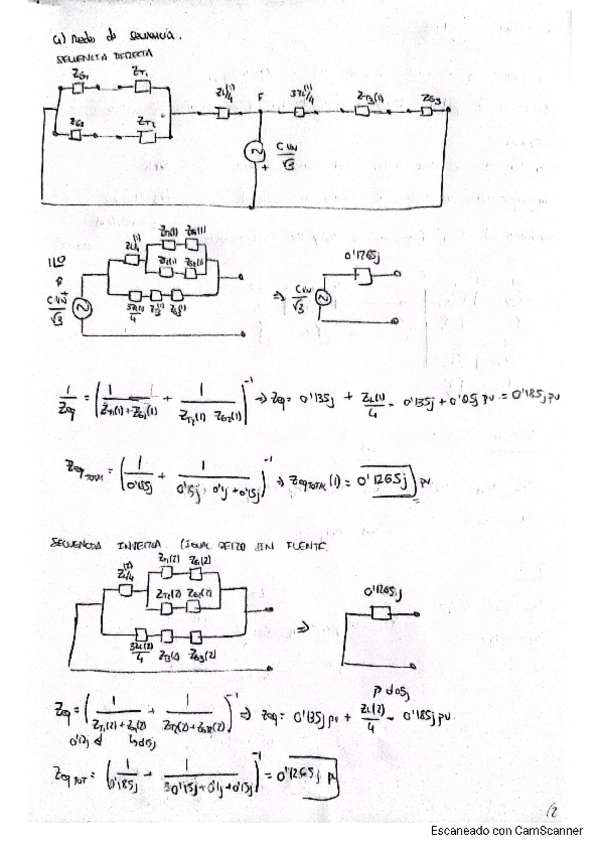 a) Redes de secuencia.
SECUENCIA DIRECTA
ZG1 ZT1
ZL(1)/4 F 3ZL(1)/4 ZT3(1) ZG3
ZG2 ZT2
C UN/√3
+
ZT1(1) ZG1(1)
ZL(1)/4
ZT2(1) ZG2(1)
C UN/√3
3ZL(1)/4
0'1265j
⇒ C UN/√3
1/Zeq = (1/(ZT1(1)+ZG1(1)) + 1/(ZT2(1) ZG2(1)))^-1 ⇒ Zeq = 0'135j + ZL(1)/4 = 0'135j + 0'05j pu = 0'185j pu
Zeq TOTAL = (1/0'185j + 1/(0'15j + 0'1j + 0'15j))^-1 ⇒ Zeq TOTAL (1) = 0'1265j pu
SECUENCIA INVERSA. (IGUAL PERO SIN FUENTE.
ZT1(2) ZG1(2)
ZL(2)/4
ZT2(2) ZG2(2)
3ZL(2)/4 ZG3(2)
⇒ 0'1265j
Zeq = (1/(ZT1(2) + ZG1(2)) + 1/(ZT2(2) + ZG2(2)))^-1 ⇒ Zeq = 0'135j pu + ZL(2)/4 = 0'185j pu
0'05j
Zeq TOT = (1/0'185j + 1/(0'15j + 0'1j + 0'15j))^-1 = 0'1265j pu
12
Escaneado con CamScanner